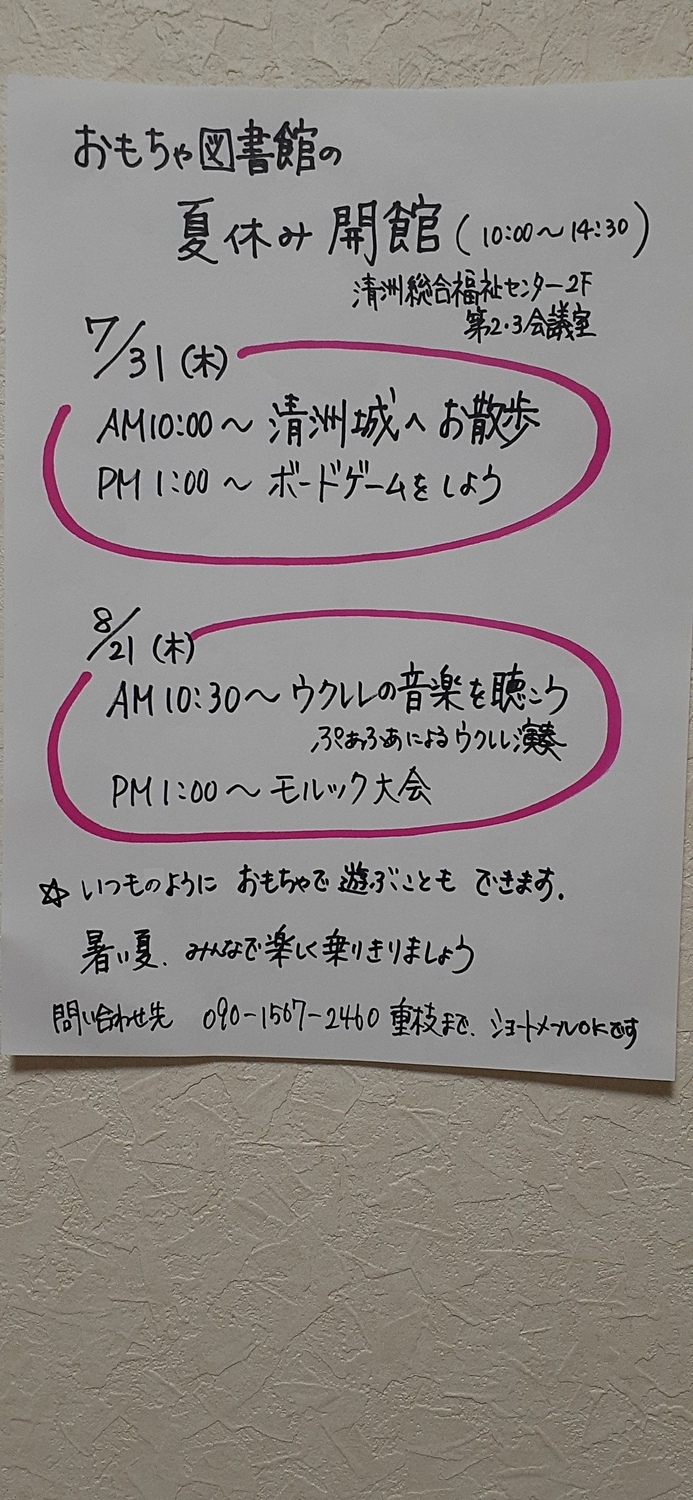 おもちゃ図書館の
夏休み 開館 (10:00〜14:30)
清洲総合福祉センター2F
第2・3会議室
7/31(木)
AM10:00〜 清洲城へ お散歩
PM 1:00 〜 ボードゲームを しよう
8/21(木)
AM 10:30〜 ウクレレの音楽を聴こう
ぷあふあによる ウクレレ演奏
PM 1:00〜 モルック大会
☆ いつものように おもちゃで 遊ぶことも できます.
暑い夏、みんなで楽しく乗りきりましょう
問い合わせ先 090-1567-2460 重枝まで、ショートメールOKです